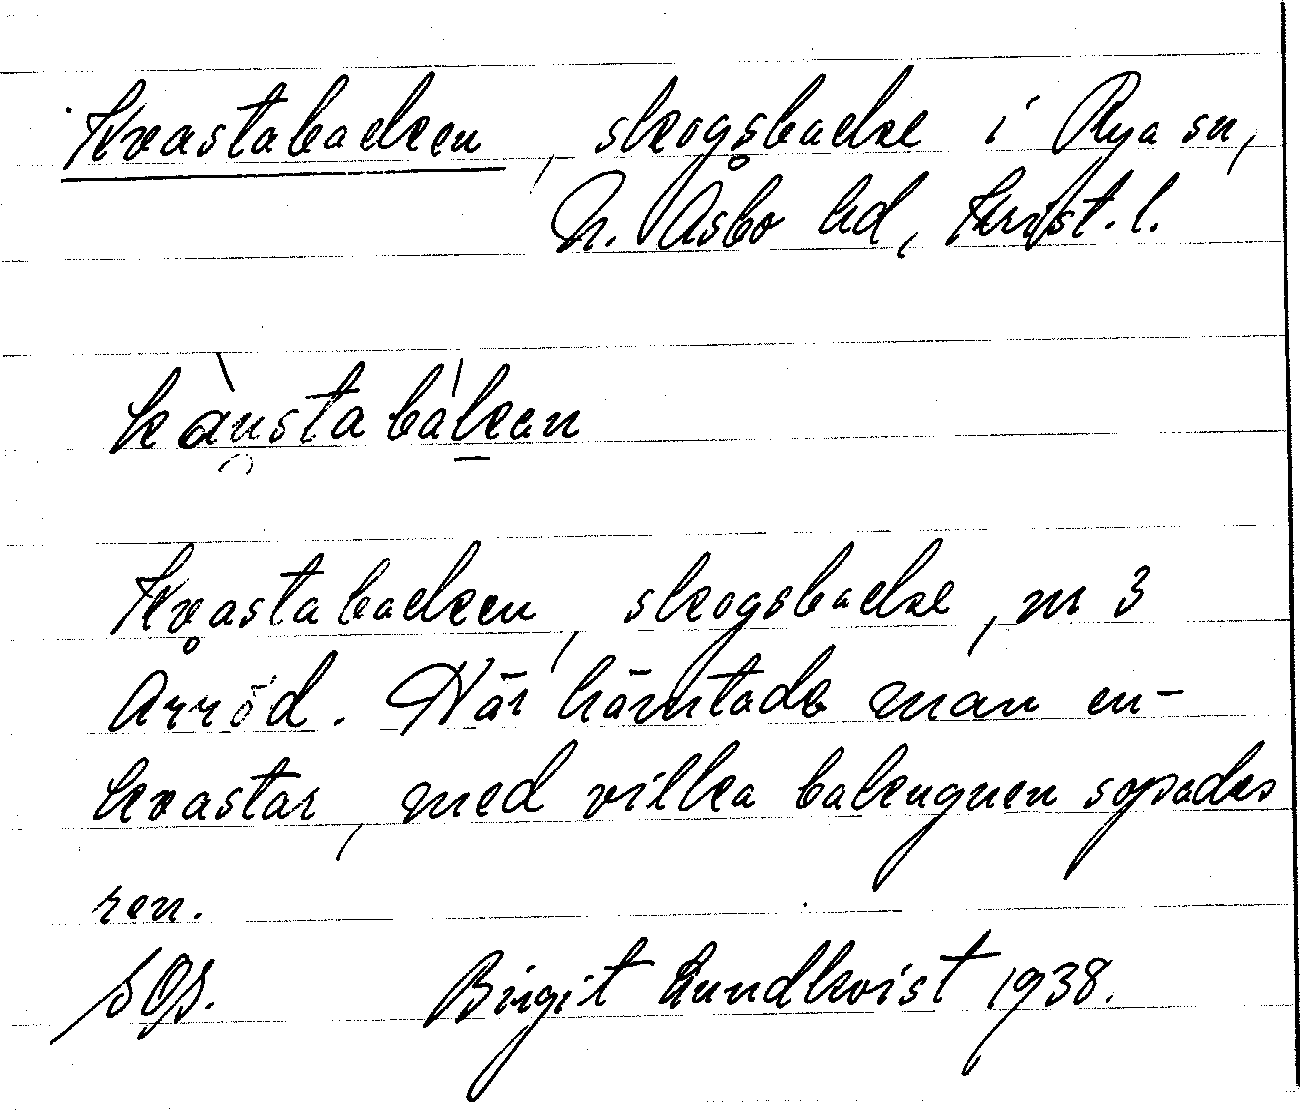 Kvastabacken, skogsbacke i Rya sn,
N. Åsbo hd, Krist. l.
kàu̯stabákan
Kvastabacken, skogsbacke, nr 3
Årröd. Här hämtade man en-
kvastar, med vilka bakugnen sopades
ren.
SOJ. Birgit Lundkvist 1938.